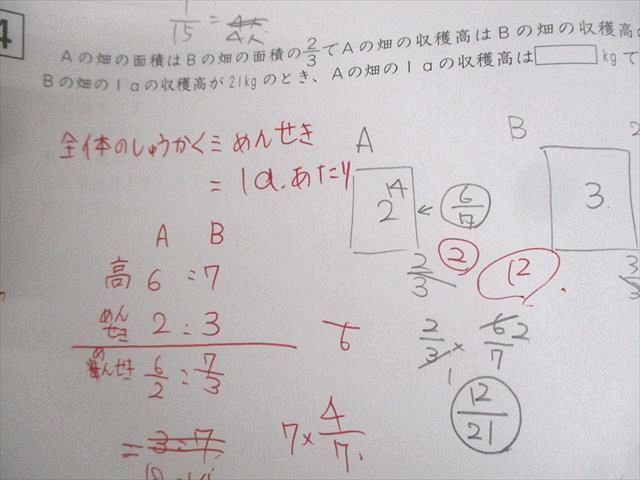 4
1/15 = 4
Aの畑の面積はBの畑の面積の2/3でAの畑の収穫高はBの畑の収穫高の
Bの畑の1aの収穫高が21kgのとき、Aの畑の1aの収穫高は□kgで
全体のしゅうかく÷めんせき
= 1a.あたり
A B
2 14 ← 6/7 3.
2/3 2 12 3/3
A B
高 6 : 7
めんせき 2 : 3
めんせき 6/2 : 7/3
= 3 : 7
6
2/3 × 6/7 2
1
12/21
7 × 4/7.